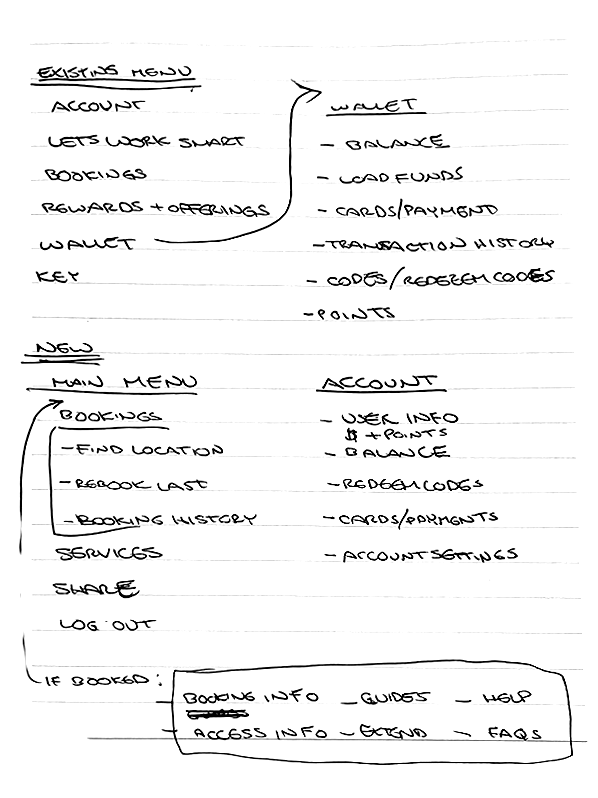 EXISTING MENU
ACCOUNT
LETS WORK SMART
BOOKINGS
REWARDS + OFFERINGS
WALLET
KEY
WALLET
- BALANCE
- LOAD FUNDS
- CARDS/PAYMENT
- TRANSACTION HISTORY
- CODES/REDEEM CODES
- POINTS
NEW
MAIN MENU
BOOKINGS
- FIND LOCATION
- REBOOK LAST
- BOOKING HISTORY
SERVICES
SHARE
LOG OUT
ACCOUNT
- USER INFO
$ + POINTS
- BALANCE
- REDEEM CODES
- CARDS/PAYMENTS
- ACCOUNT SETTINGS
IF BOOKED:
- BOOKING INFO - GUIDES - HELP
- ACCESS INFO - EXTEND - FAQS